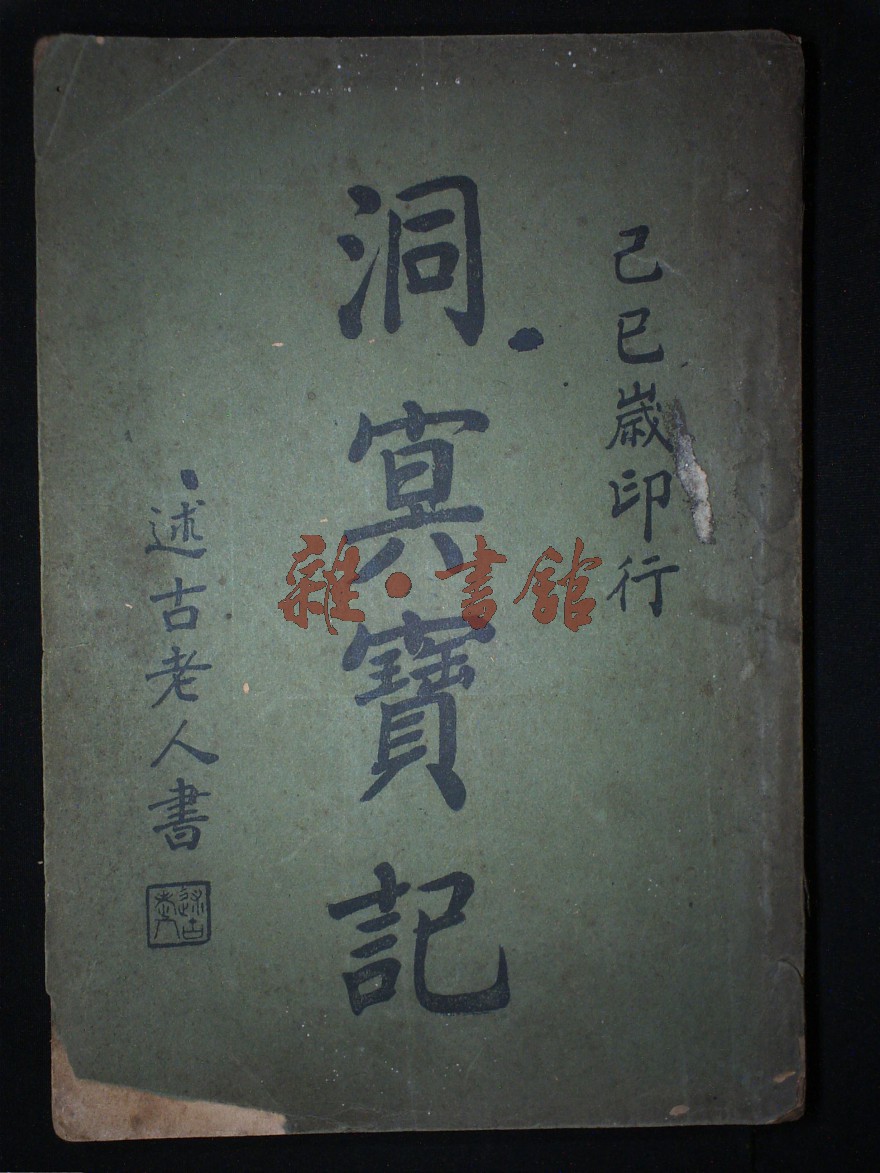 己巳歲印行
洞冥寶記
述古老人書
述古老人
雜·書館